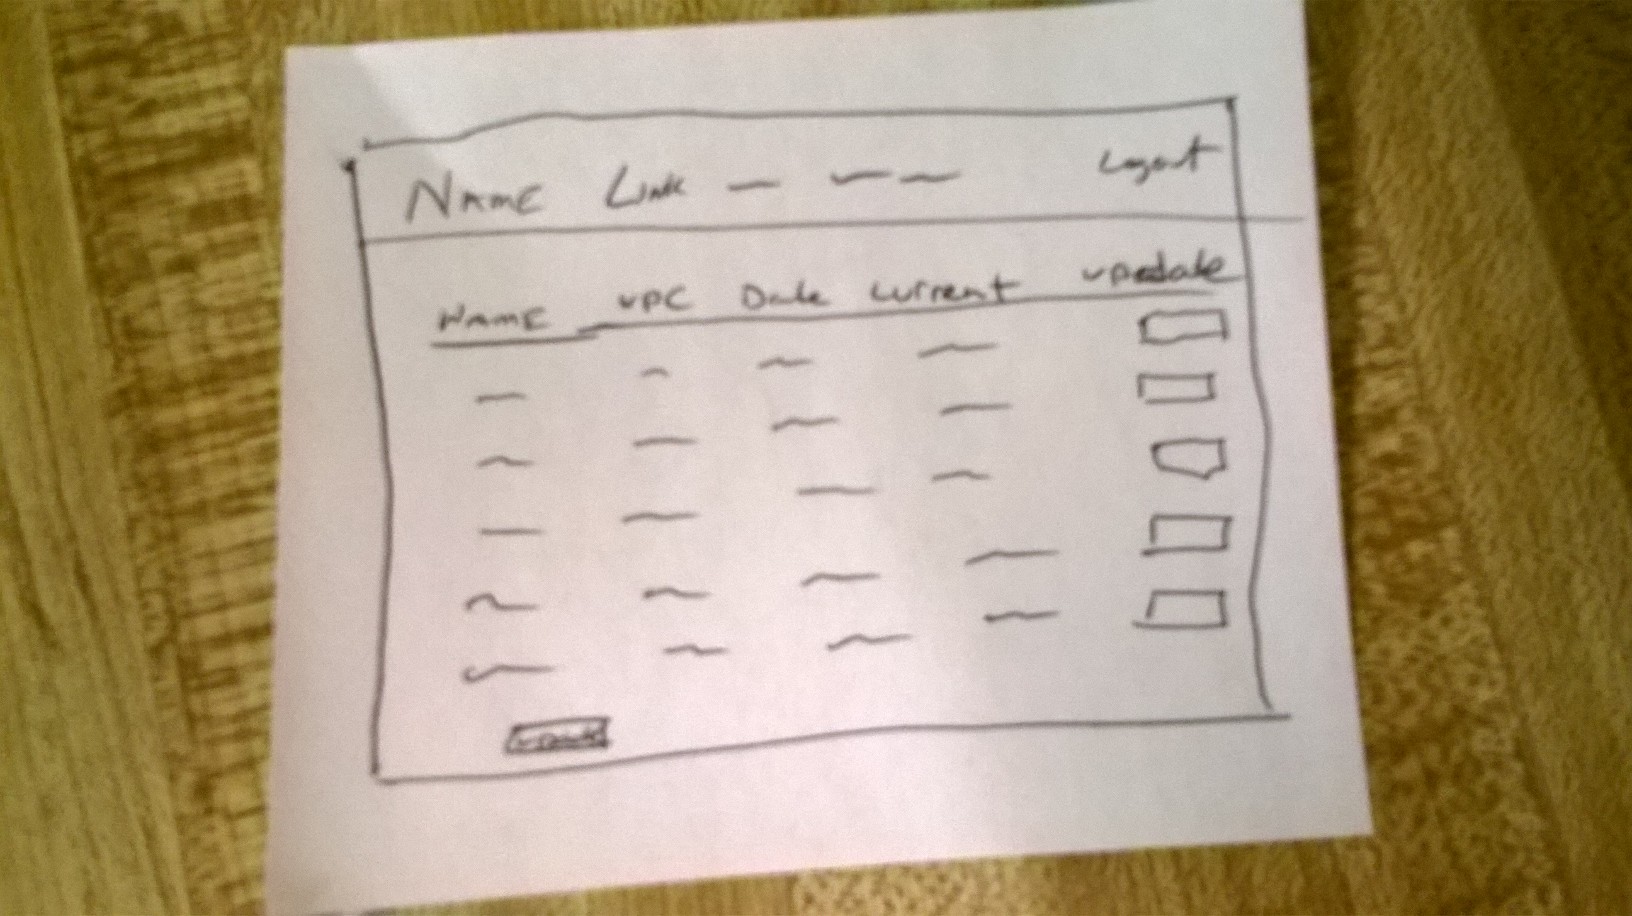 Name Link Logout
Name UPC Date Current Update